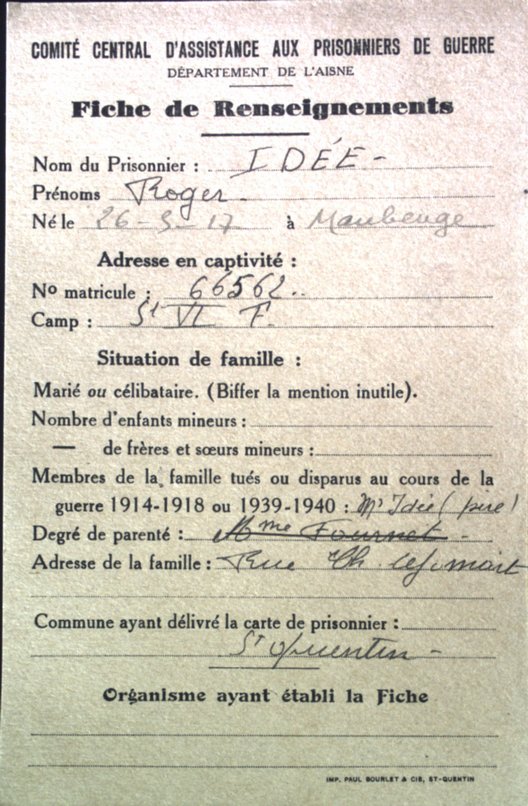 COMITÉ CENTRAL D'ASSISTANCE AUX PRISONNIERS DE GUERRE
DÉPARTEMENT DE L'AISNE
Fiche de Renseignements
Nom du Prisonnier : IDÉE -
Prénoms Roger -
Né le 26-3-17 à Maubeuge
Adresse en captivité :
No matricule : 66562..
Camp : St VI F.
Situation de famille :
Marié ou célibataire. (Biffer la mention inutile).
Nombre d'enfants mineurs :
— de frères et sœurs mineurs :
Membres de la famille tués ou disparus au cours de la
guerre 1914-1918 ou 1939-1940 : Mr Idée (père)
Degré de parenté : Mme Fournet -
Adresse de la famille : Rue Ch.
Commune ayant délivré la carte de prisonnier :
St Quentin -
Organisme ayant établi la Fiche
IMP. PAUL BOURLET & CIE, ST-QUENTIN